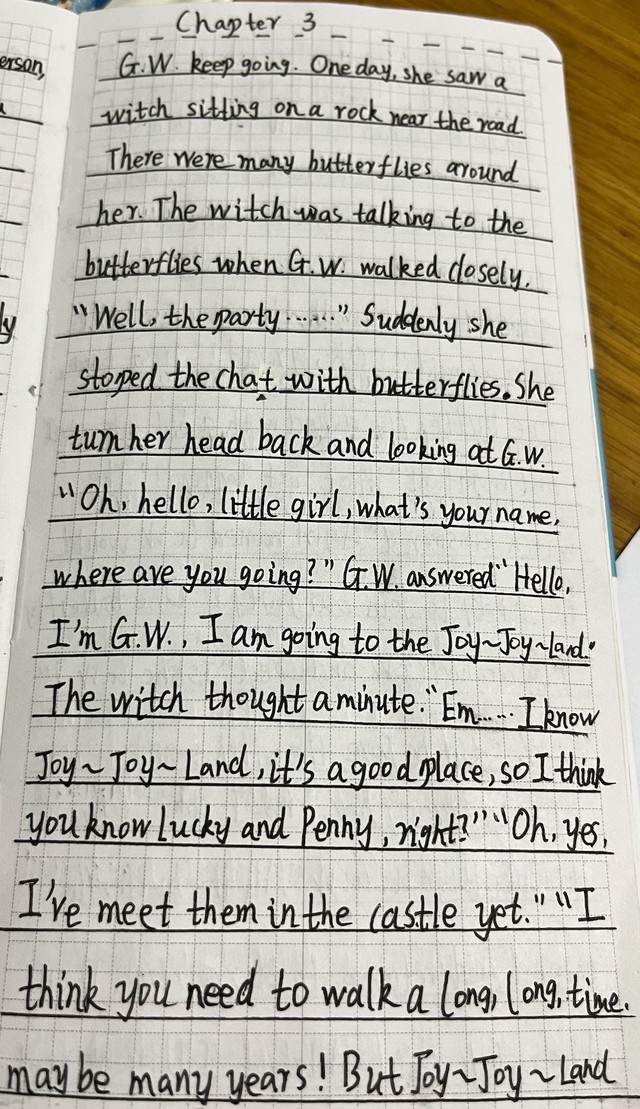 Chapter 3
erson,
G.W. keep going. One day, she saw a
witch sitting on a rock near the road.
There were many butterflies around
her. The witch was talking to the
butterflies when G.W. walked closely.
"Well, the party ......" Suddenly she
ly
stoped the chat with butterflies. She
turn her head back and looking at G.W.
"Oh, hello, little girl, what's your name,
where are you going?" G.W. answered "Hello,
I'm G.W., I am going to the Joy~Joy~Land."
The witch thought a minute. "Em..... I know
Joy~Joy~Land, it's a good place, so I think
you know Lucky and Penny, right?" "Oh, yes,
I've meet them in the castle yet." "I
think you need to walk a long, long, time.
may be many years! But Joy~Joy~Land